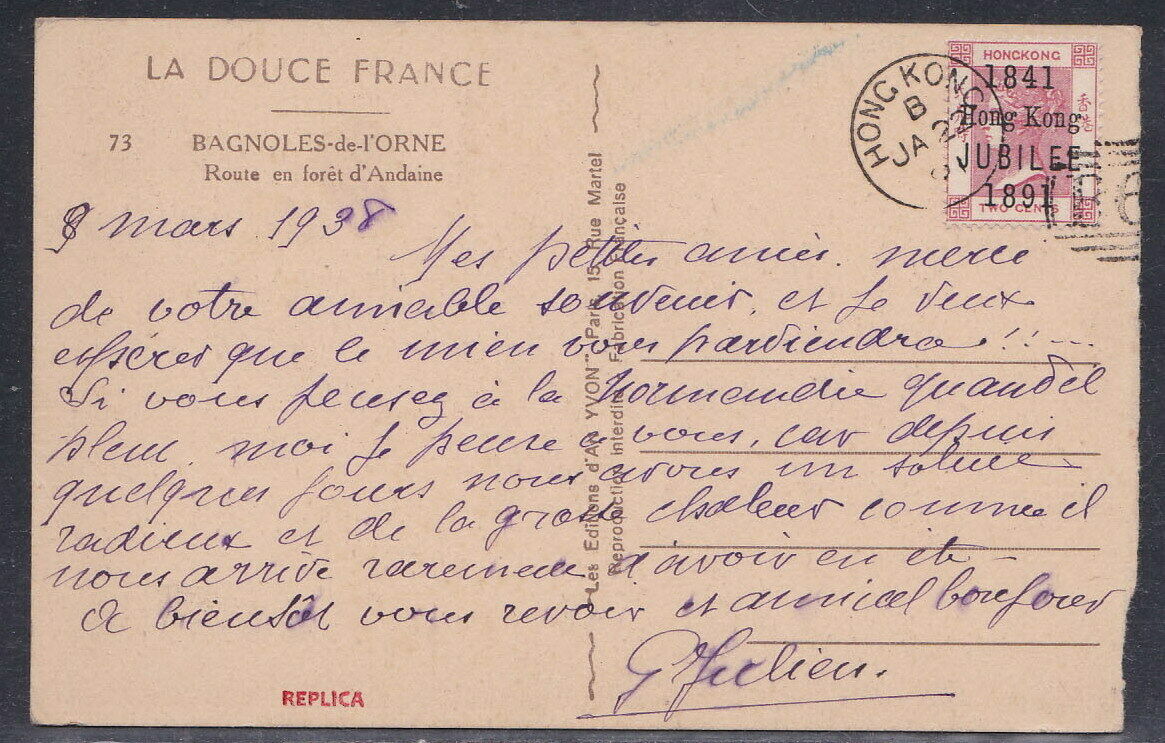 LA DOUCE FRANCE
73 BAGNOLES-de-l'ORNE
Route en forêt d'Andaine
HONG KONG
B
JA 22
HONGKONG
1841
Hong Kong
JUBILEE
1891
TWO CENTS
香港
6
Les Editions d'Art YVON Paris, 15, Rue Martel
Reproduction Interdite Fabrication Française
8 mars 1938
Mes petites amies. merci
de votre aimable souvenir, et je veux
espérer que le mien vous parviendra!!....
Si vous pensez à la Normandie quand il
pleut, moi je pense à vous, car depuis
quelques jours nous avons un soleil
radieux et de la grosse chaleur comme il
nous arrive rarement d'avoir en été
A bientôt vous revoir et amical bonjour
G Julien.
REPLICA